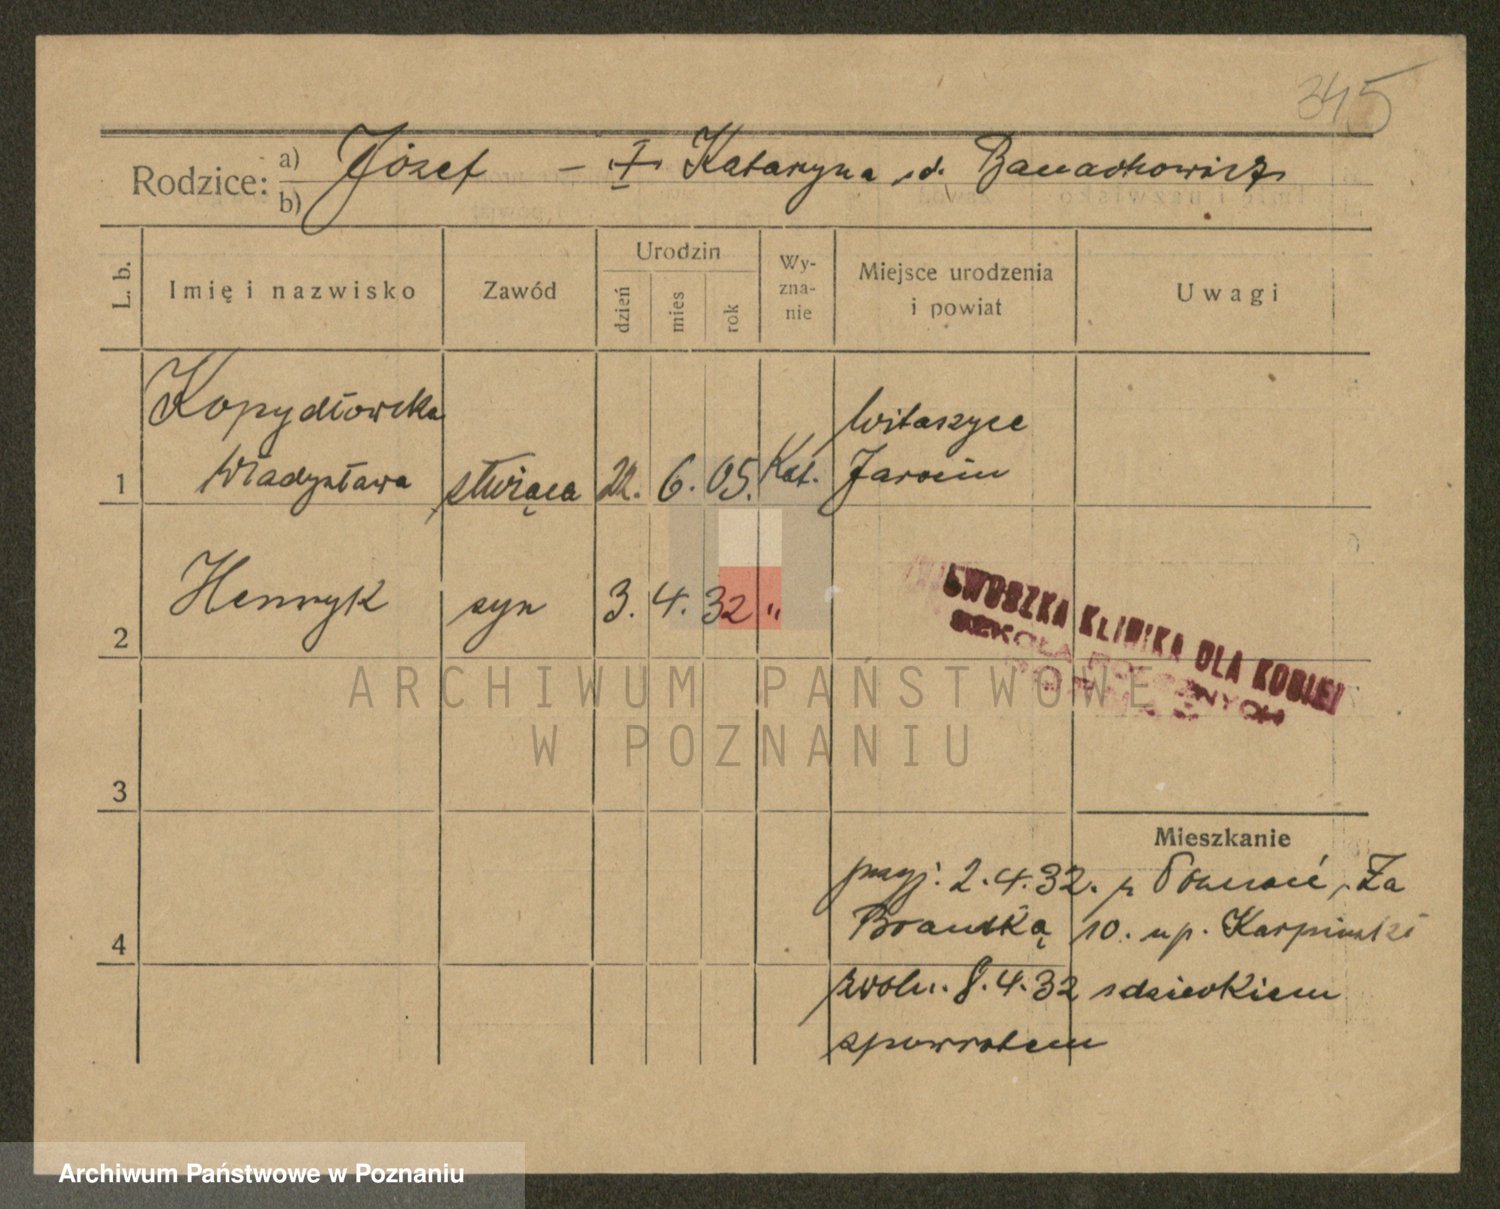 345
Rodzice: a) Józef - † Katarzyna zd. Banachowicz
b)
L. b. Imię i nazwisko Zawód Urodzin dzień mies rok Wy-zna-nie Miejsce urodzenia i powiat Uwagi
Kopydłowska Witaszyce
1 Władysława służąca 22. 6. 05. Kat. Jarocin
2 Henryk syn 3. 4. 32 "
WOJEWÓDZKA KLINIKA DLA KOBIET
SZKOŁA POŁOŻNYCH
ARCHIWUM PAŃSTWOWE
W POZNANIU
3
Mieszkanie
przyj. 2.4.32. z Poznań, Za
4 Bramką 10. u p. Karpiński
zwoln. 8.4.32 z dzieckiem
zpowrotem
Archiwum Państwowe w Poznaniu